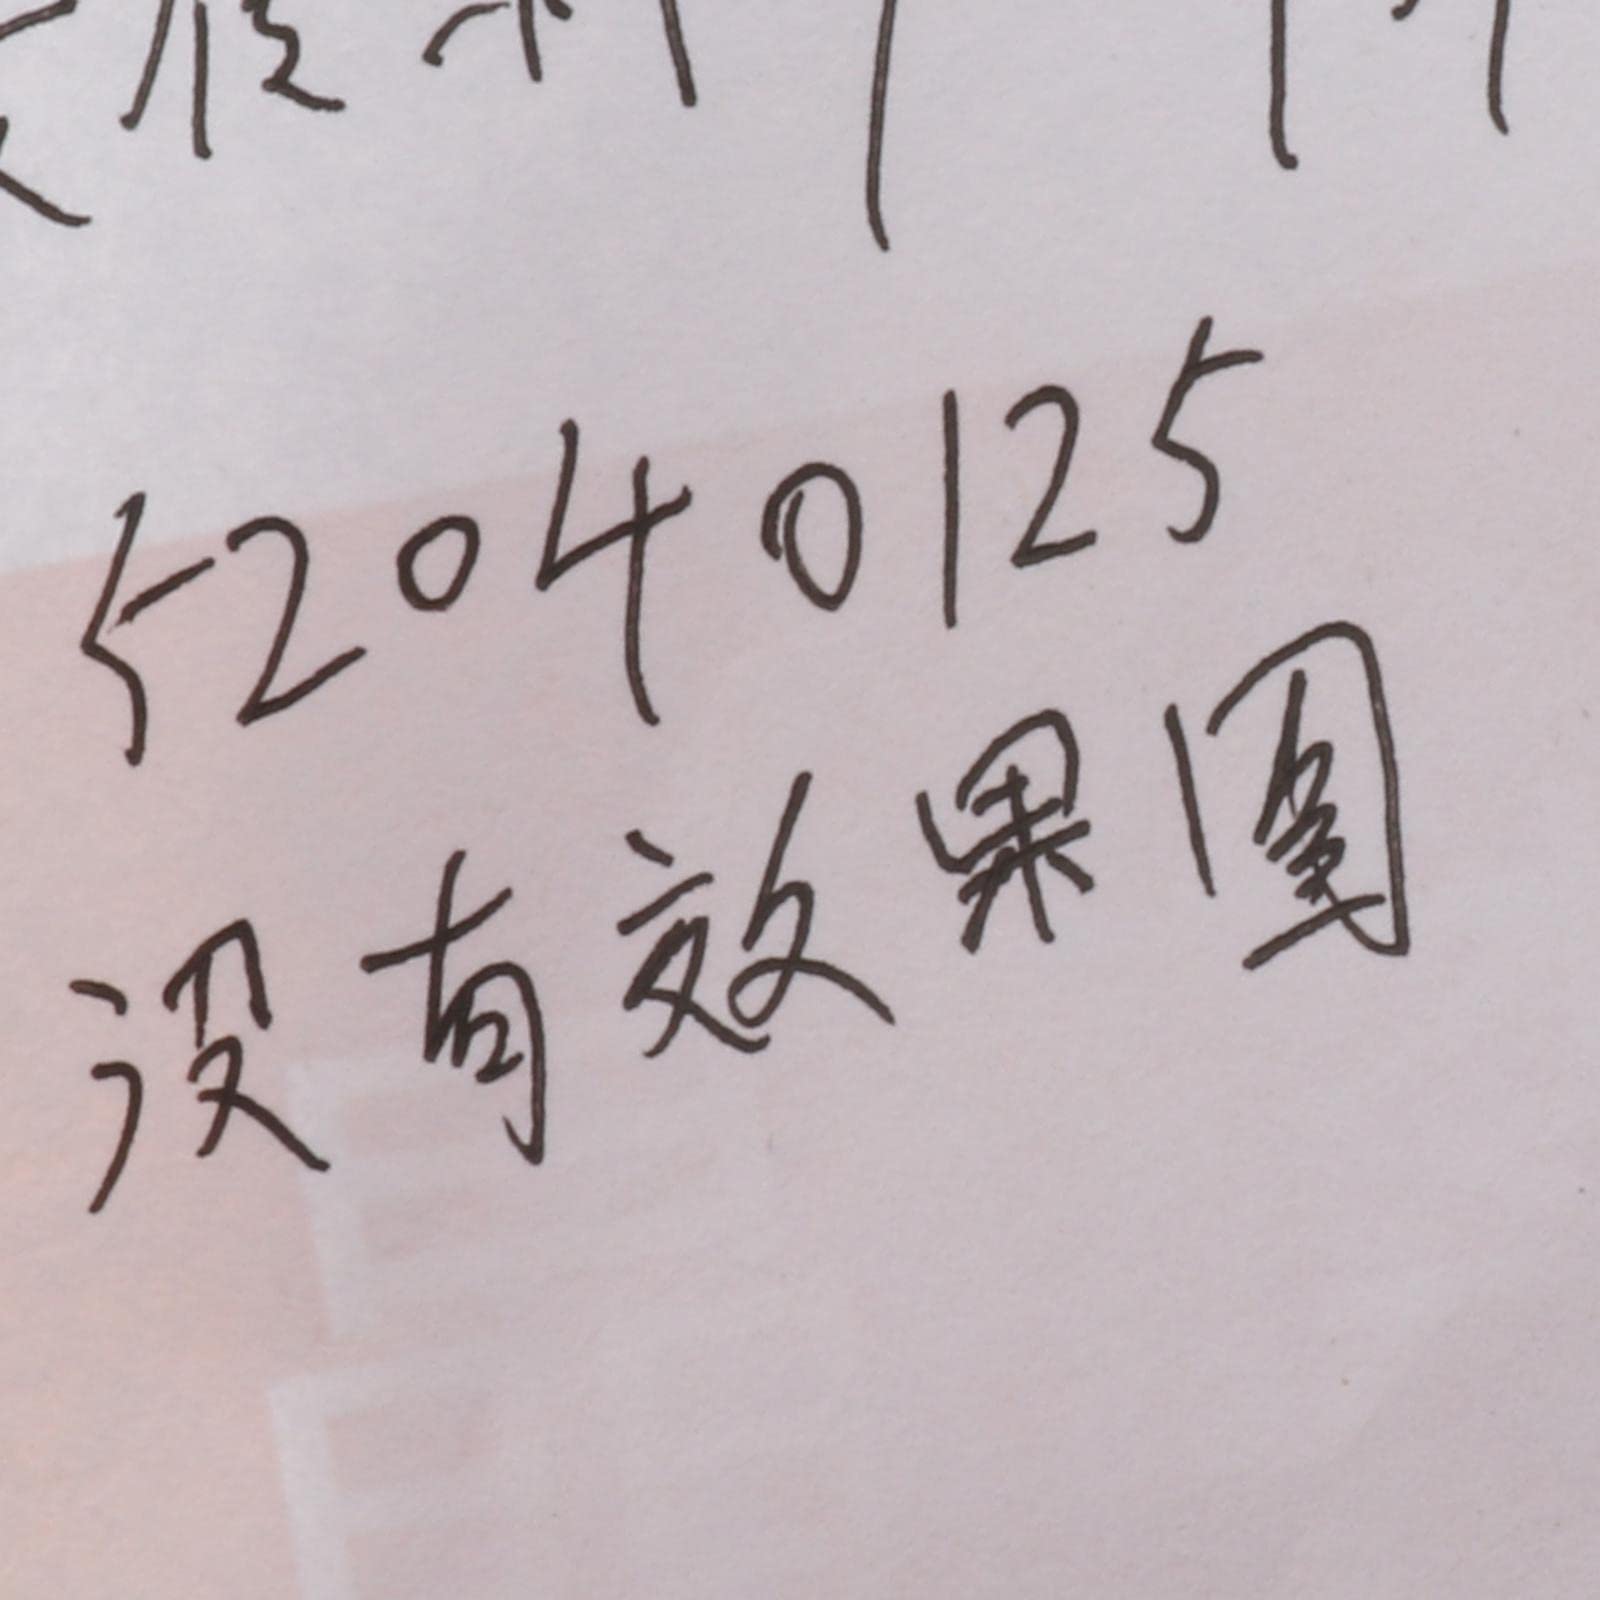 52040125
没有效果图